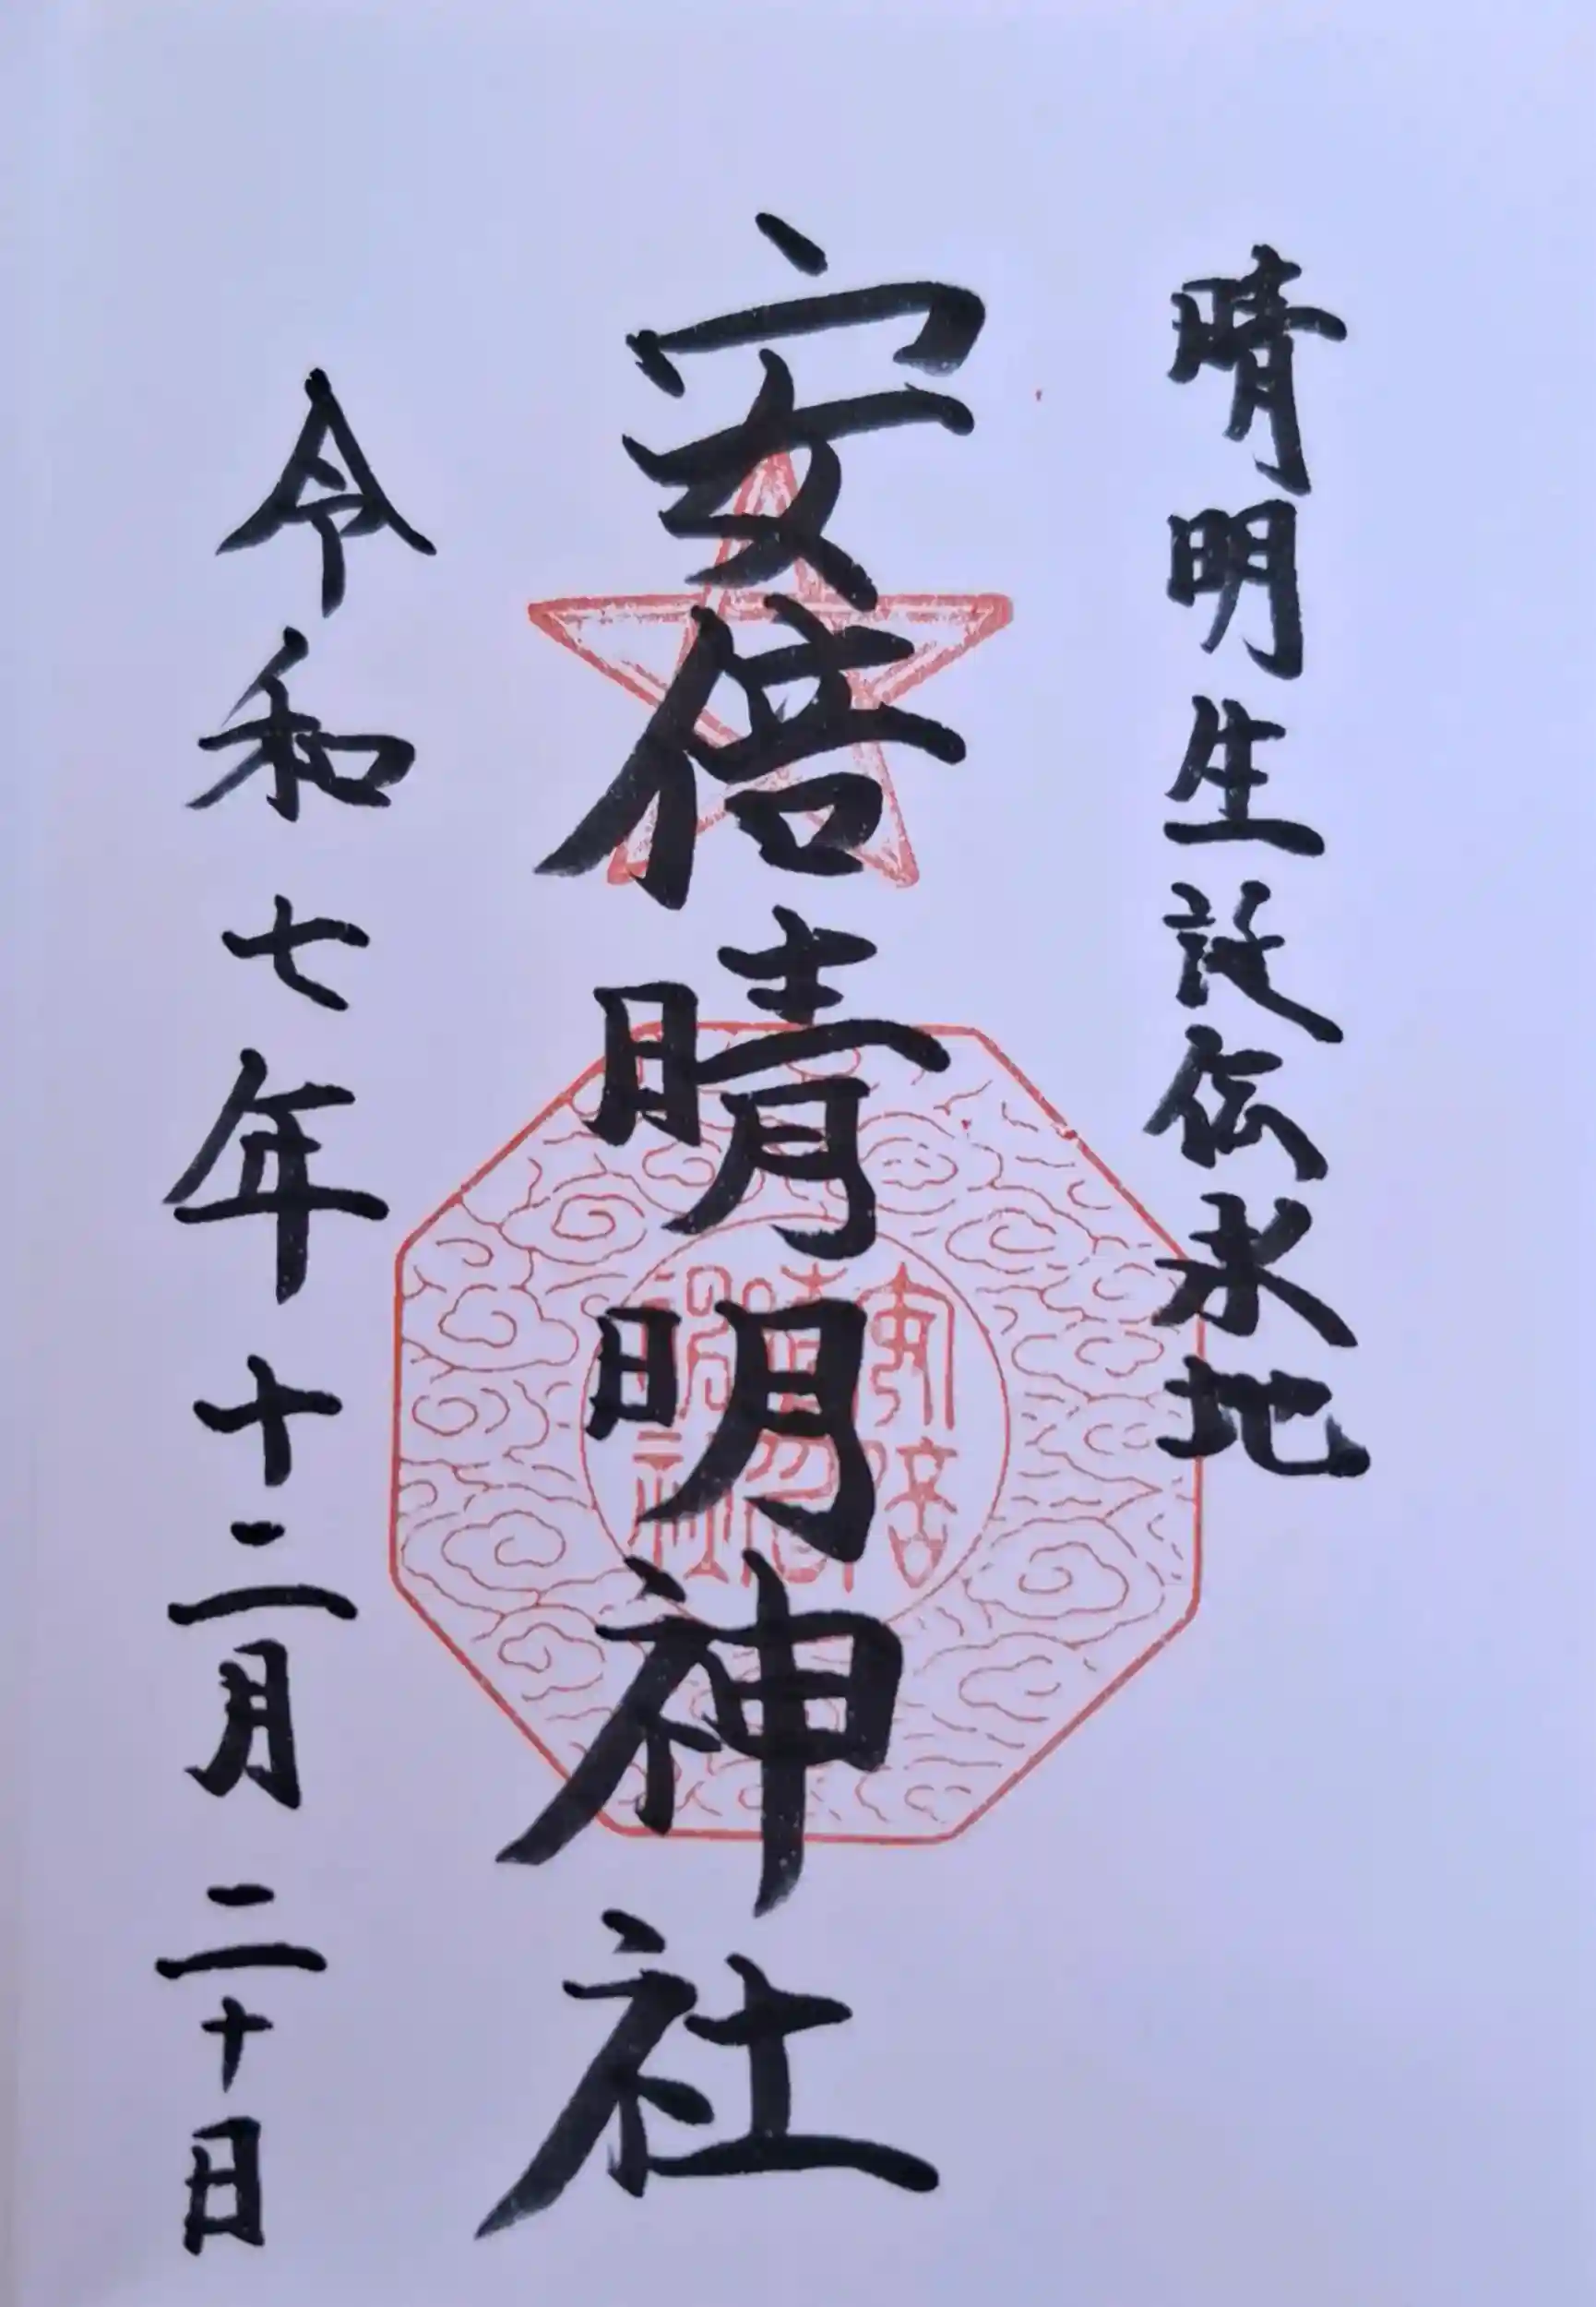 晴明生誕伝承地
安倍晴明神社
令和七年十二月二十日
安倍
晴明
神社